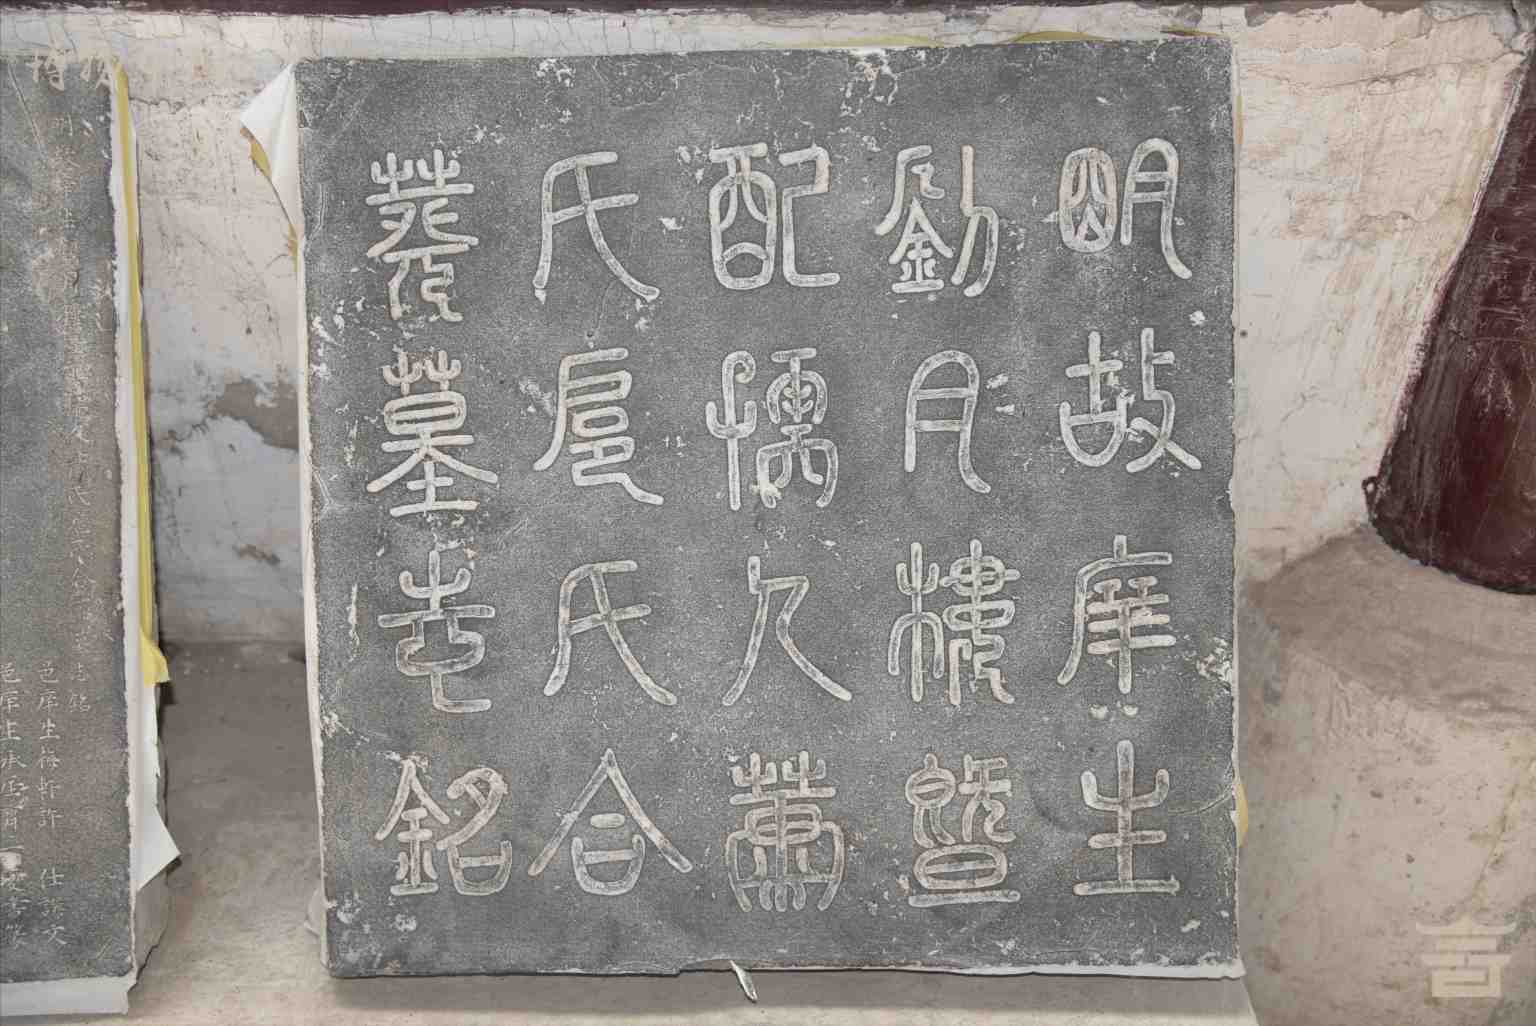 明故庠生
劉月樓暨
配孺人蕭
氏扈氏合
葬墓志銘
志銘
邑庠生梅軒許 仕 撰文
邑庠生